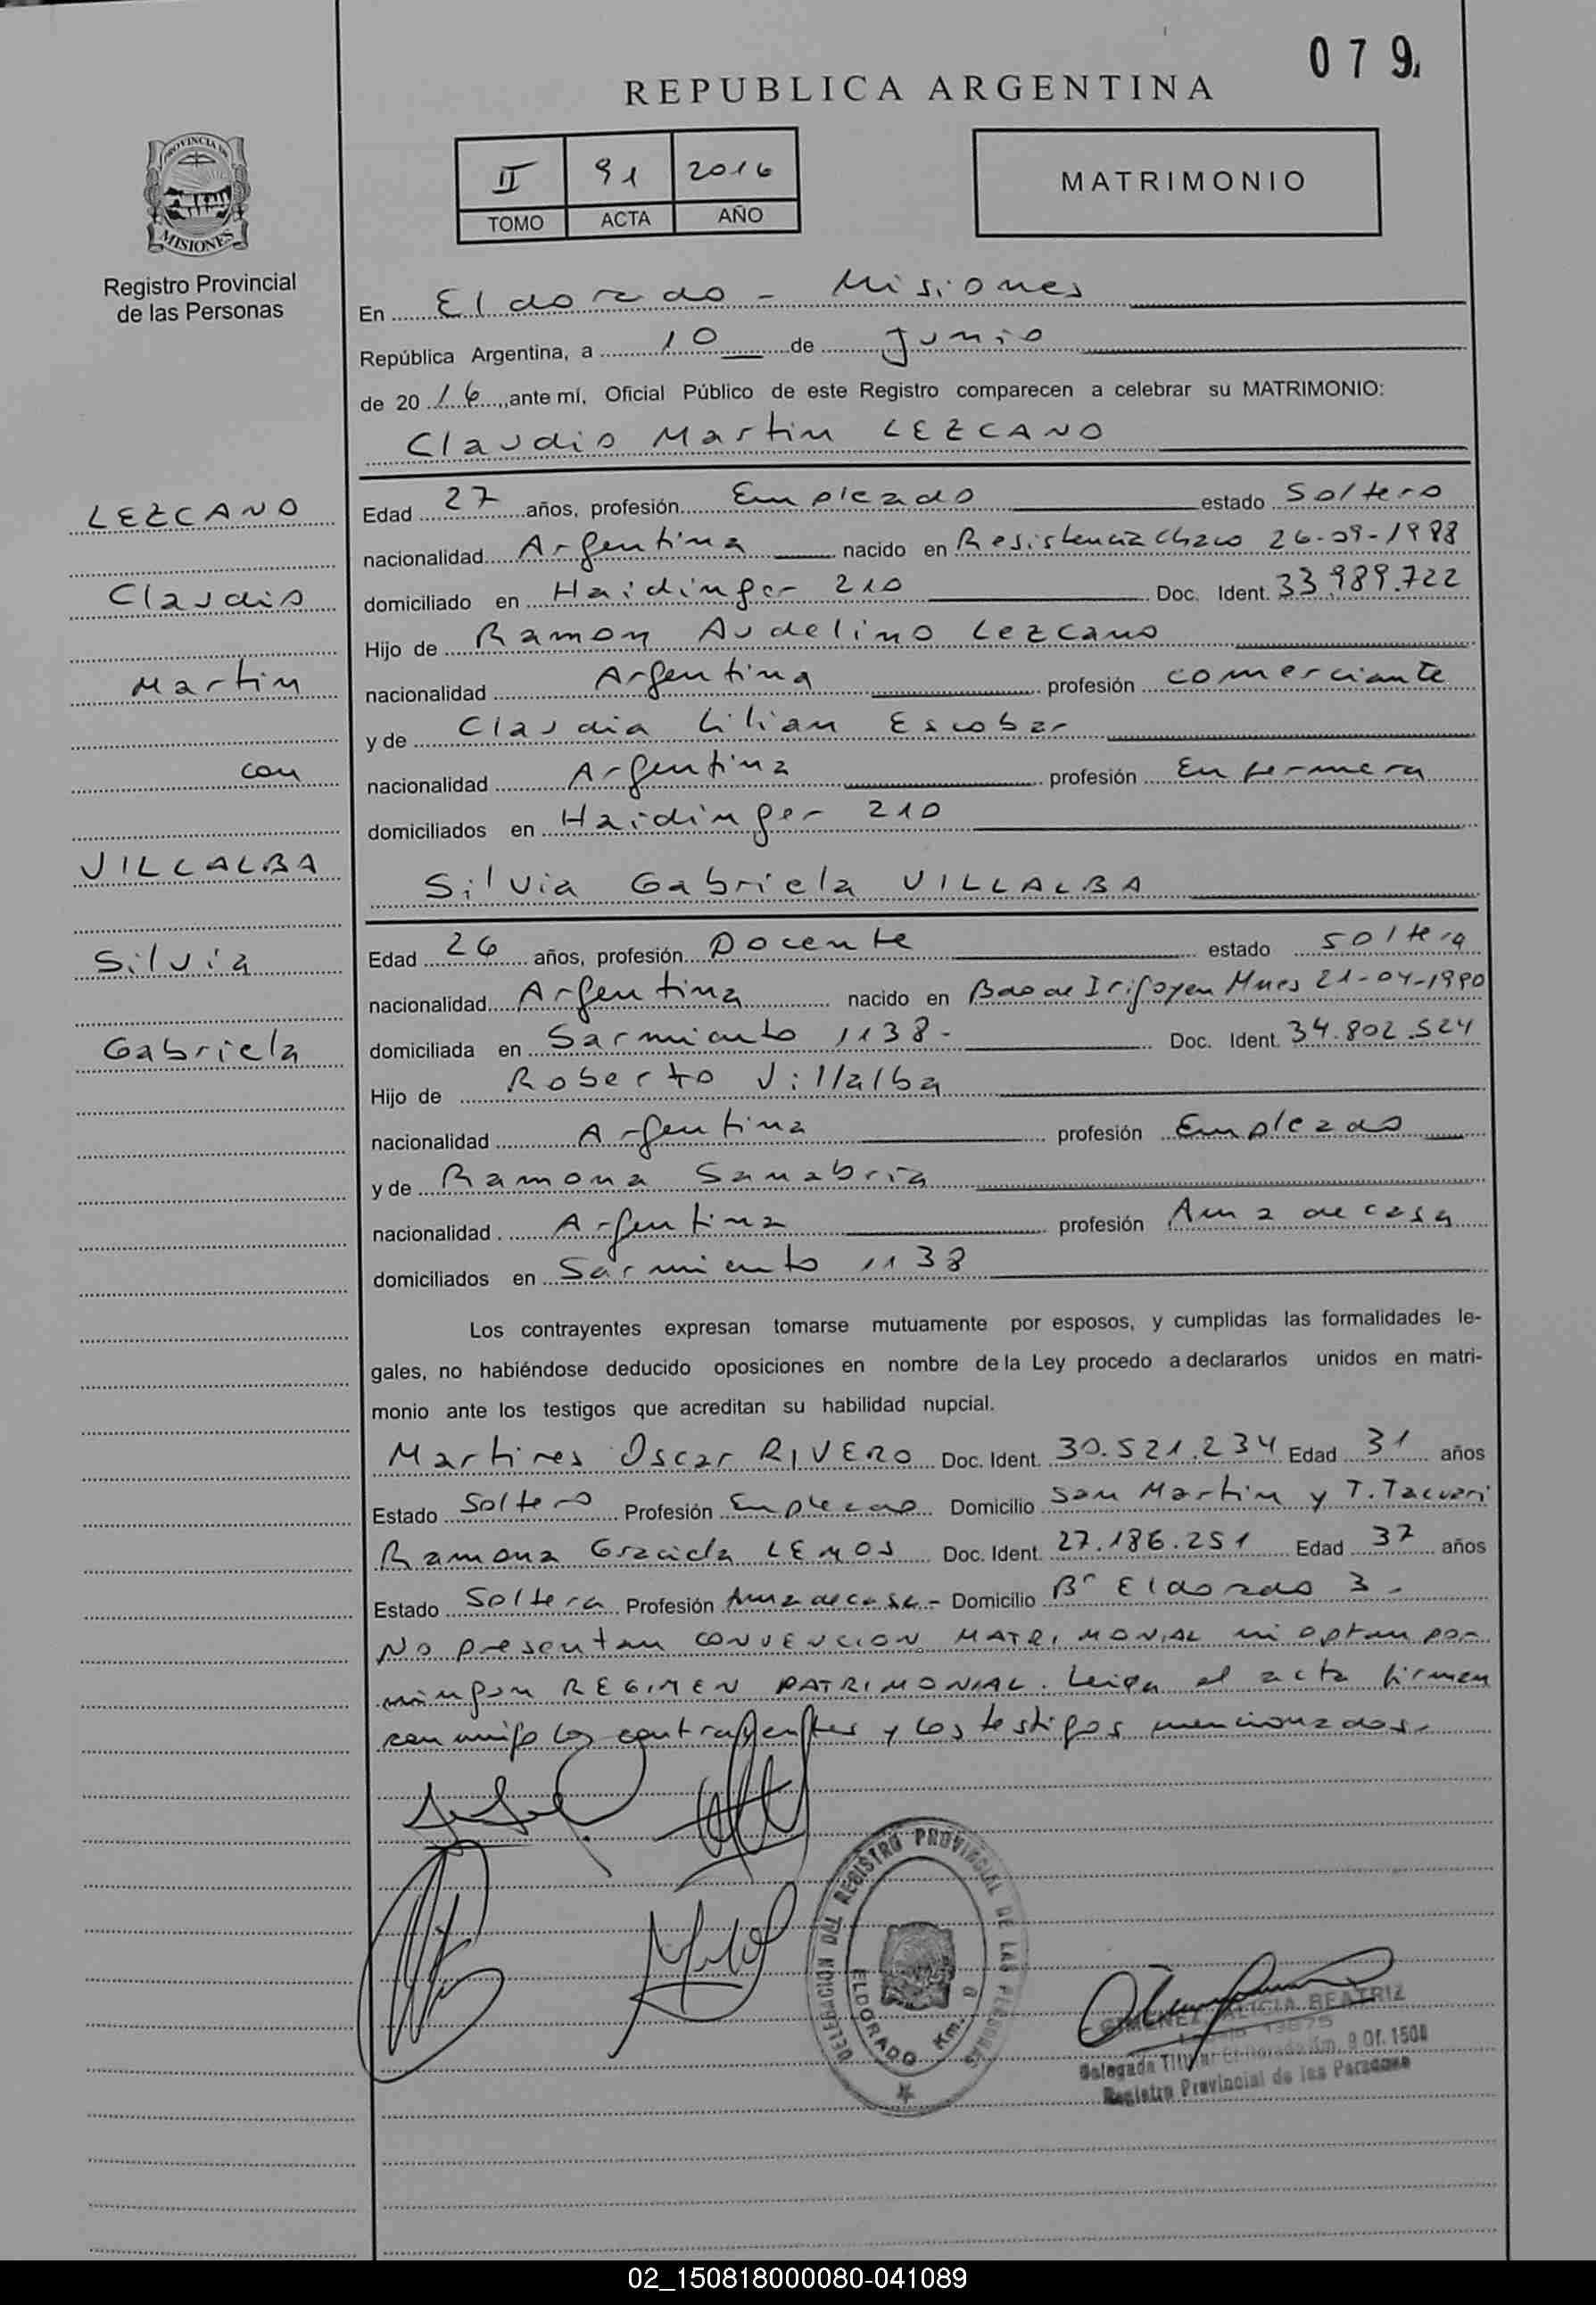 079
REPUBLICA ARGENTINA
PROVINCIA DE
MISIONES
Registro Provincial
de las Personas
II 91 2016
TOMO ACTA AÑO
MATRIMONIO
En Eldorado - Misiones
República Argentina, a 10 de Junio
de 2016, ante mí, Oficial Público de este Registro comparecen a celebrar su MATRIMONIO:
Claudio Martin LEZCANO
LEZCANO
Claudio
Martin
con
VILLALBA
Silvia
Gabriela
Edad 27 años, profesión Empleado estado Soltero
nacionalidad Argentina nacido en Resistencia Chaco 26-09-1988
domiciliado en Haidinger 210 Doc. Ident. 33.989.722
Hijo de Ramon Audelino Lezcano
nacionalidad Argentina profesión comerciante
y de Claudia Lilian Escobar
nacionalidad Argentina profesión Enfermera
domiciliados en Haidinger 210
Silvia Gabriela VILLALBA
Edad 26 años, profesión Docente estado soltera
nacionalidad Argentina nacido en Bdo de Irigoyen Mnes 21-04-1990
domiciliada en Sarmiento 1138- Doc. Ident. 34.802.524
Hijo de Roberto Villalba
nacionalidad Argentina profesión Empleado
y de Ramona Sanabria
nacionalidad Argentina profesión Ama de casa
domiciliados en Sarmiento 1138
Los contrayentes expresan tomarse mutuamente por esposos, y cumplidas las formalidades le-
gales, no habiéndose deducido oposiciones en nombre de la Ley procedo a declararlos unidos en matri-
monio ante los testigos que acreditan su habilidad nupcial.
Martires Oscar RIVERO Doc. Ident. 30.521.234 Edad 31 años
Estado Soltero Profesión Empleado Domicilio San Martin y T. Tacuari
Ramona Graciela LEMOS Doc. Ident. 27.186.251 Edad 37 años
Estado Soltera Profesión Ama de casa - Domicilio Bº Eldorado 3 -
No presentan CONVENCION MATRIMONIAL ni optan por
ningun REGIMEN PATRIMONIAL. Leida el acta firman
conmigo los contrayentes y los testigos mencionados.-
DELEGACION DEL REGISTRO PROVINCIAL DE LAS PERSONAS
ELDORADO Km. 9
GIMENEZ, ALICIA BEATRIZ
Delegada Titular Eldorado Km. 9 Of. 1508
Registro Provincial de las Personas
02_150818000080-041089